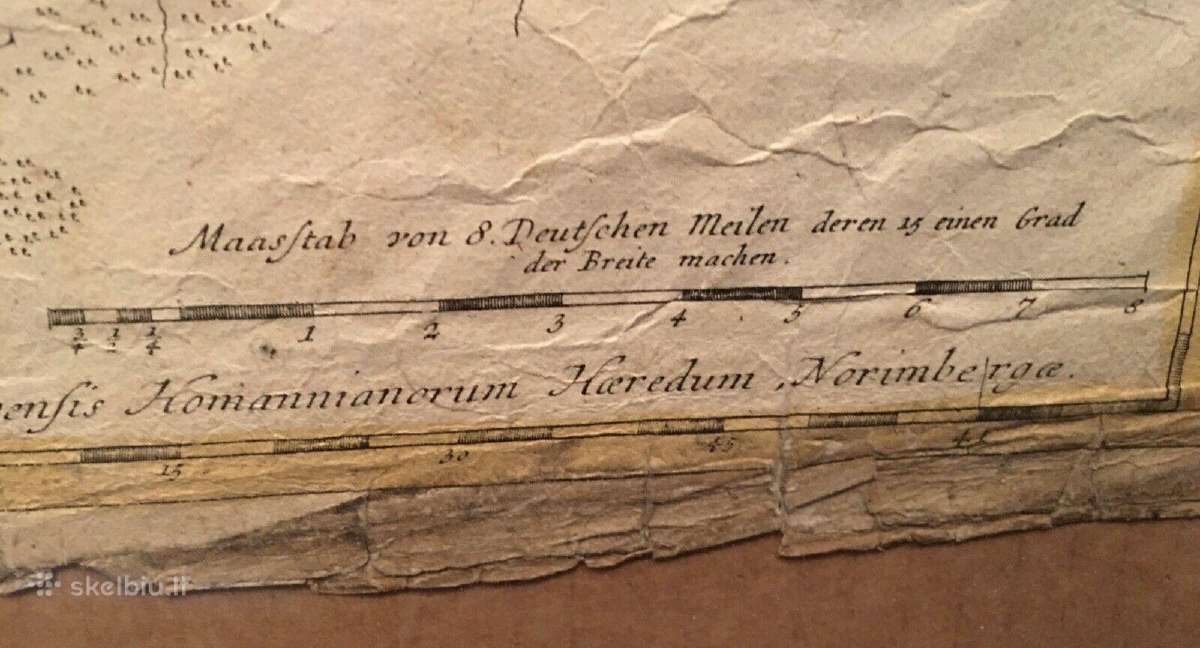 Maasstab von 8. Deutschen Meilen deren 15 einen Grad
der Breite machen.
3/4 1/2 1/4 1 2 3 4 5 6 7 8
ensis Homannianorum Hæredum, Norimbergæ.
15 30 45 41
skelbiu.lt